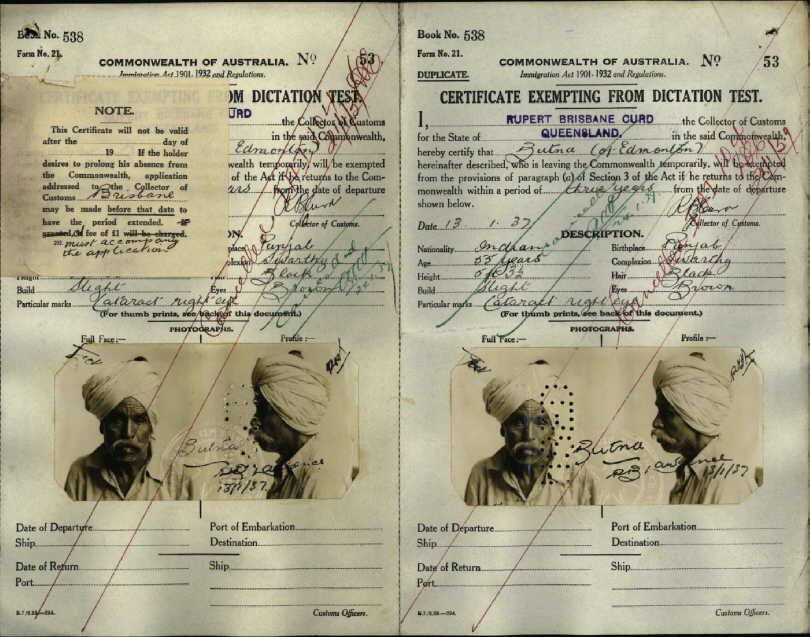 Book No. 538
Form No. 21.
COMMONWEALTH OF AUSTRALIA.
No 53
Immigration Act 1901-1932 and Regulations.
OM DICTATION TEST.
URD
the Collector of Customs
in the said Commonwealth,
Edmonton)
wealth temporarily, will be exempted
of the Act if he returns to the Com-
from the date of departure
Collector of Customs.
ON.
Punjab
Swarthy
Black
Build Slight Eyes Brown
Particular marks Cataract right eye
(For thumb prints, see back of this document.)
PHOTOGRAPHS.
Full Face:— Profile:—
NOTE.
This Certificate will not be valid
after the day of
19 If the holder
desires to prolong his absence from
the Commonwealth, application
addressed to the Collector of
Customs Brisbane
may be made before that date to
have the period extended. If
granted, a fee of £1 will be charged.
must accompany
the application
Cancelled
Butna
13/1/37
Date of Departure Port of Embarkation
Ship Destination
Date of Return Ship
Port
Customs Officers.
Book No. 538
Form No. 21.
COMMONWEALTH OF AUSTRALIA.
No 53
DUPLICATE.
Immigration Act 1901-1932 and Regulations.
CERTIFICATE EXEMPTING FROM DICTATION TEST.
I, RUPERT BRISBANE CURD the Collector of Customs
for the State of QUEENSLAND. in the said Commonwealth,
hereby certify that Butna (of Edmonton)
hereinafter described, who is leaving the Commonwealth temporarily, will be exempted
from the provisions of paragraph (a) of Section 3 of the Act if he returns to the Com-
monwealth within a period of three years from the date of departure
shown below.
Date 13. 1. 37
Collector of Customs.
DESCRIPTION.
Nationality Indian Birthplace Punjab
Age 55 years Complexion Swarthy
Height Hair Black
Build Slight Eyes Brown
Particular marks Cataract right eye
(For thumb prints, see back of this document.)
PHOTOGRAPHS.
Full Face:— Profile:—
Cancelled
Butna
13/1/37
Date of Departure Port of Embarkation
Ship Destination
Date of Return Ship
Port
Customs Officers.